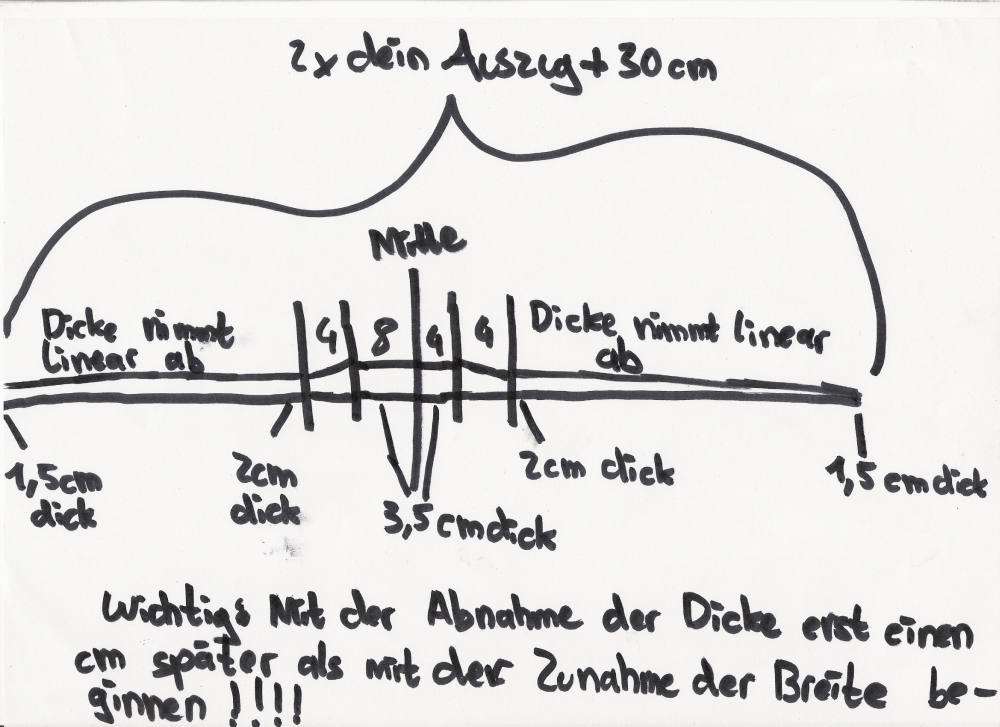 2x dein Auszug + 30 cm
Mitte
Dicke nimmt
linear ab
4 8 4 4
Dicke nimmt linear
ab
1,5cm
dick
2cm
dick
3,5 cm dick
2cm dick
1,5 cm dick
Wichtig: Mit der Abnahme der Dicke erst einen
cm später als mit der Zunahme der Breite be-
ginnen !!!!